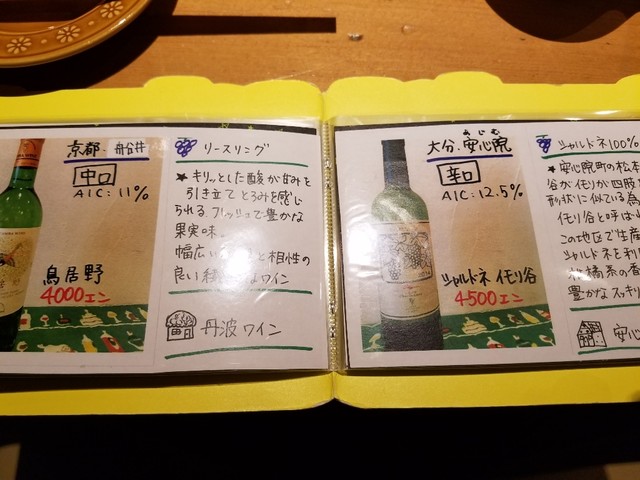 京都・舟谷井
中口
AlC:11%
鳥居野
4000エン
リースリング
★キリッとした酸が甘みを
引き立てとろみを感じ
られる。フレッシュで豊かな
果実味。
幅広い
と相性の
良い
ワイン
丹波ワイン
あじむ
大分・安心院
辛口
AlC:12.5%
シャルドネ イモリ谷
4500エン
シャルドネ100%
★安心院町の松本
谷がイモリが四肢
形状に似ている為
イモリ谷と呼ば
この地区で生産
シャルドネを利
柑橘系の香
豊かなスッキリ
安心